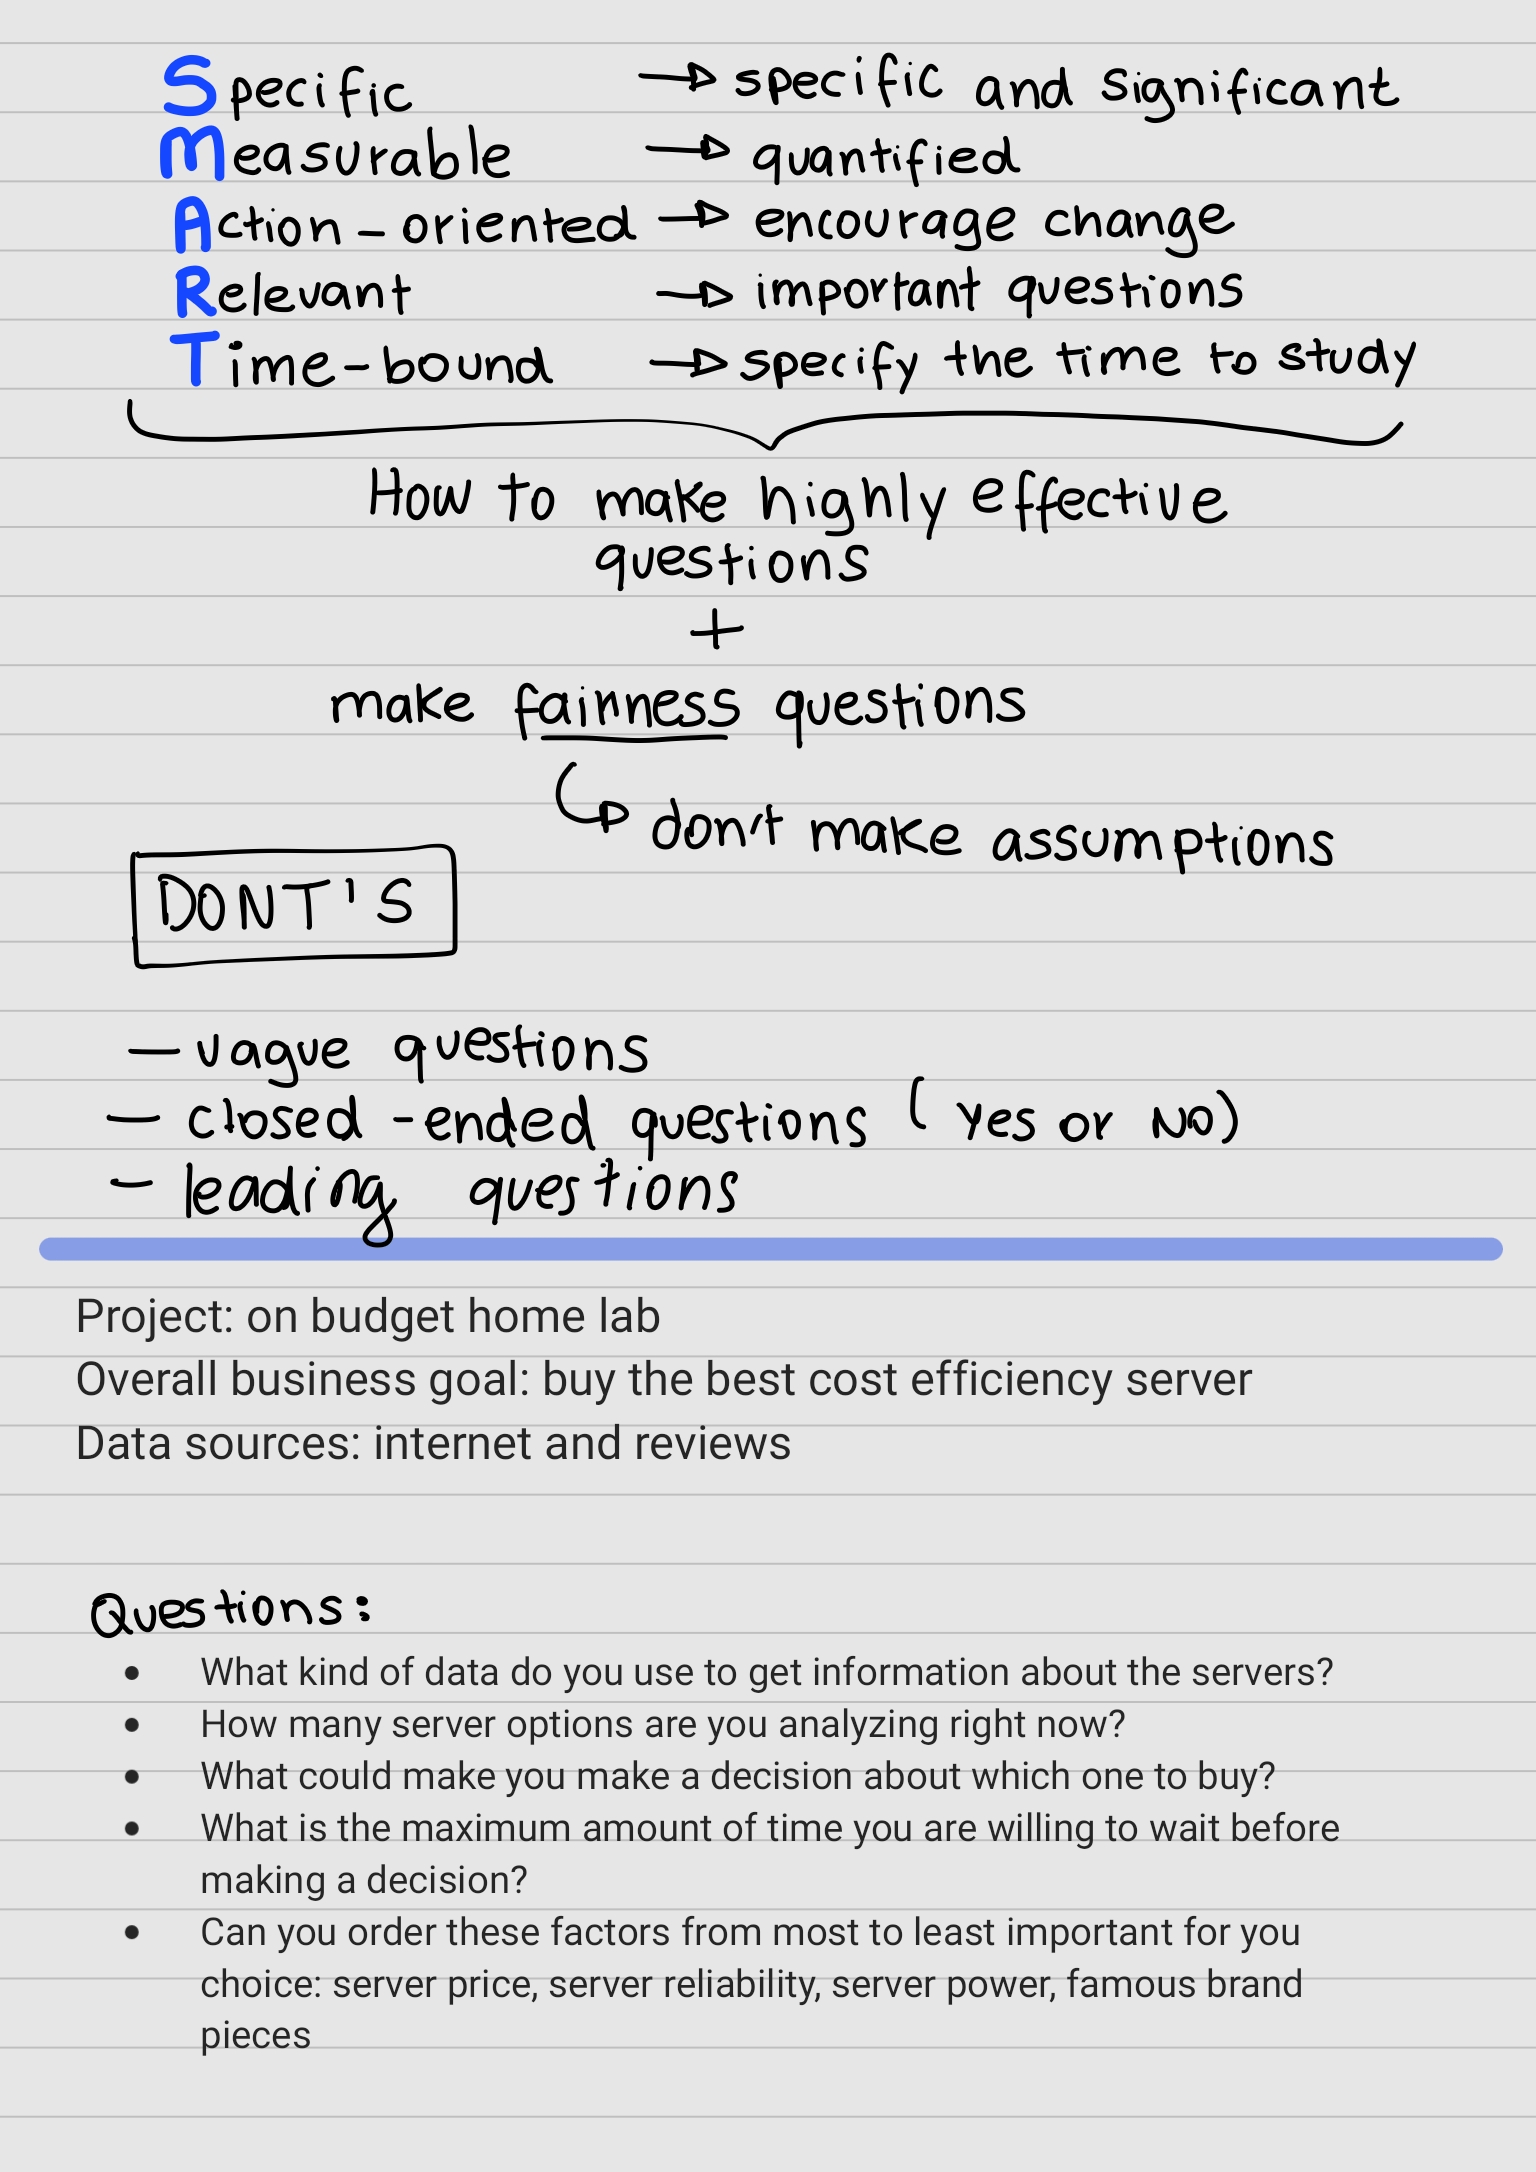 Specific → specific and significant
Measurable → quantified
Action-oriented → encourage change
Relevant → important questions
Time-bound → specify the time to study
How to make highly effective
questions
+
make fairness questions
↳ don't make assumptions
DONT'S
- vague questions
- closed-ended questions (Yes or No)
- leading questions
Project: on budget home lab
Overall business goal: buy the best cost efficiency server
Data sources: internet and reviews
Questions:
• What kind of data do you use to get information about the servers?
• How many server options are you analyzing right now?
• What could make you make a decision about which one to buy?
• What is the maximum amount of time you are willing to wait before
making a decision?
• Can you order these factors from most to least important for you
choice: server price, server reliability, server power, famous brand
pieces